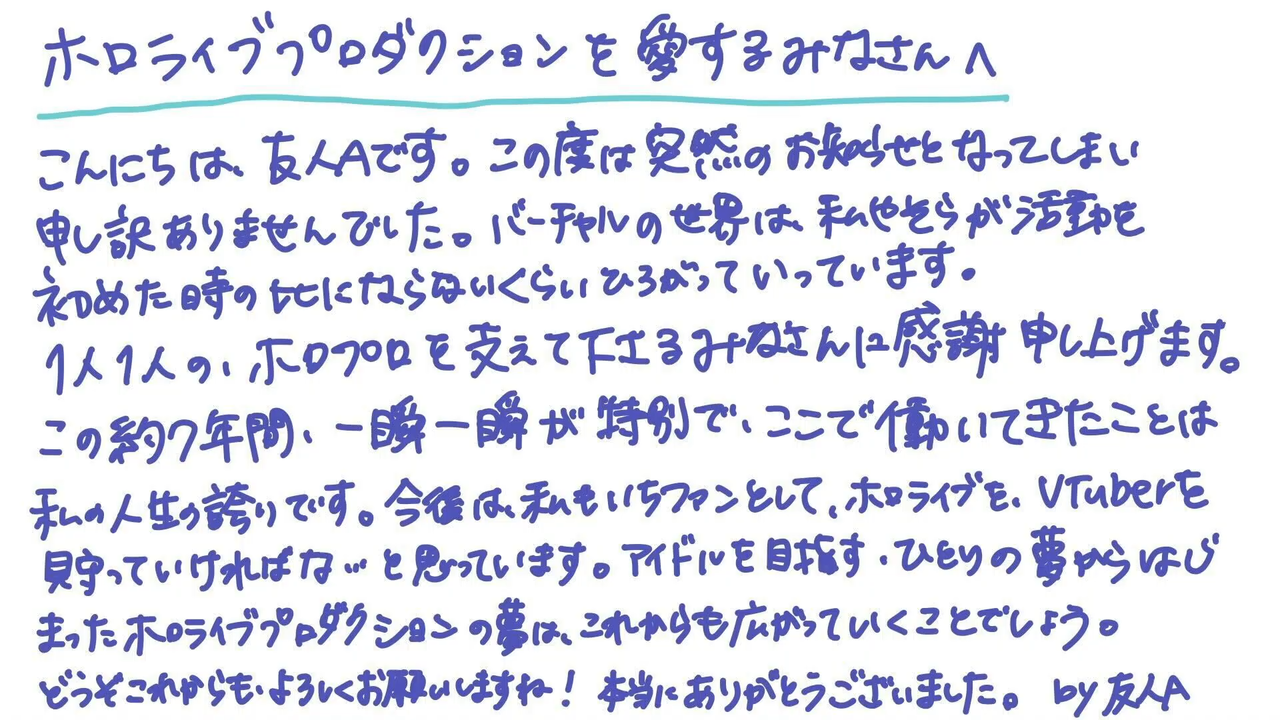 ホロライブプロダクションを愛するみなさんへ
こんにちは、友人Aです。この度は突然のお知らせとなってしまい
申し訳ありませんでした。バーチャルの世界は、私やそらが活動を
初めた時の比にならないくらいひろがっていっています。
1人1人の、ホロプロを支えて下さるみなさんに感謝申し上げます。
この約7年間、一瞬一瞬が特別で、ここで働いてきたことは
私の人生の誇りです。今後は、私もいちファンとして、ホロライブを、VTuberを
見守っていければな…と思っています。アイドルを目指す、ひとりの夢からはじ
まったホロライブプロダクションの夢は、これからも広がっていくことでしょう。
どうぞこれからも、よろしくお願いしますね！本当にありがとうございました。by友人A